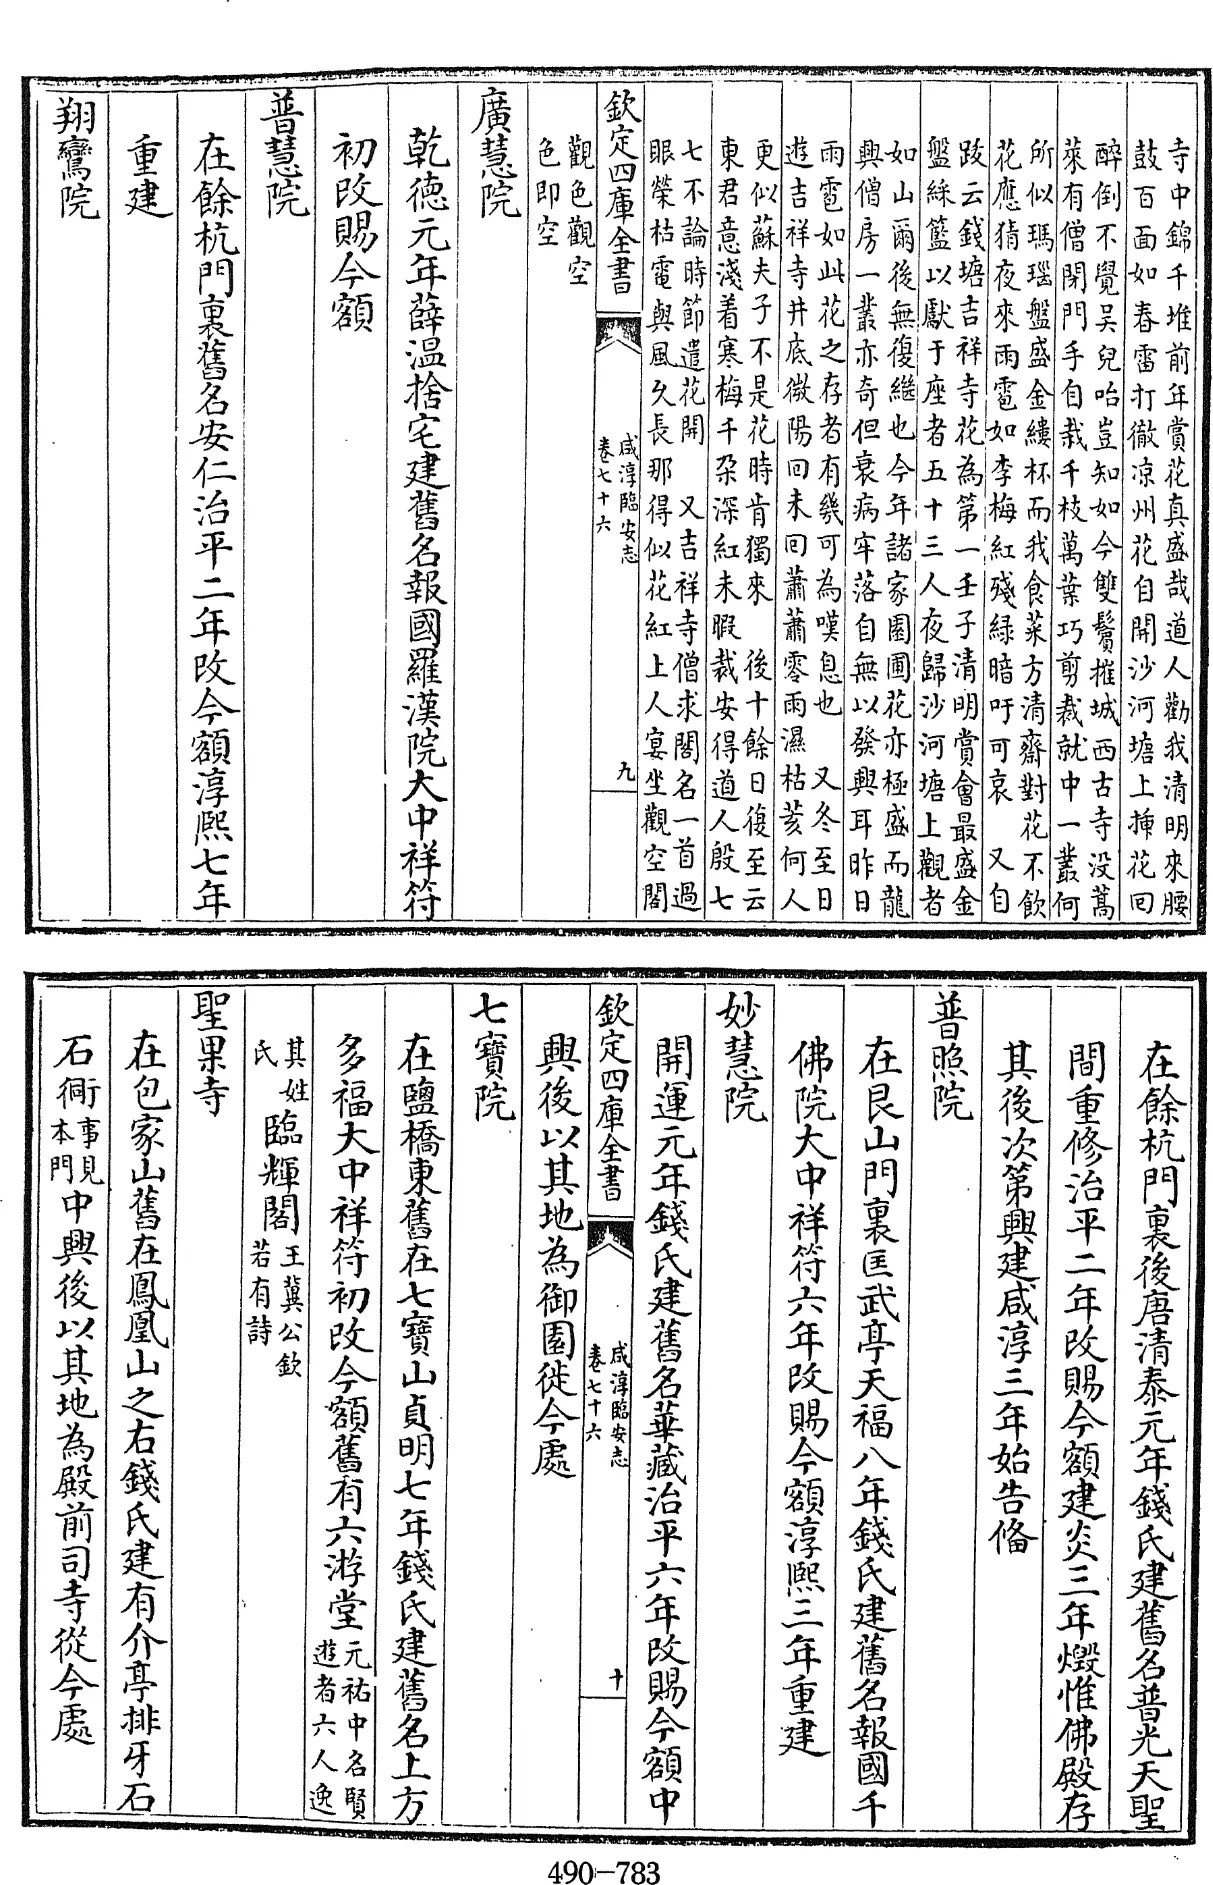 寺中錦千堆前年賞花真盛哉道人勸我清明來腰
鼓百面如春雷打徹凉州花自開沙河塘上揷花回
醉倒不覺吳兒咍豈知如今雙鬢摧城西古寺没蒿
萊有僧閉門手自栽千枝萬葉巧剪裁就中一叢何
所似瑪瑙盤盛金縷杯而我食菜方清齋對花不飲
花應猜夜來雨雹如李梅紅殘緑暗吁可哀　又自
跋云錢塘吉祥寺花為第一壬子清明賞會最盛金
盤綵籃以獻于座者五十三人夜歸沙河塘上觀者
如山爾後無復繼也今年諸家園圃花亦極盛而龍
興僧房一叢亦奇但衰病牢落自無以發興耳昨日
雨雹如此花之存者有幾可為嘆息也　又冬至日
遊吉祥寺井底微陽回未回蕭蕭零雨濕枯荄何人
更似蘇夫子不是花時肯獨來　後十餘日復至云
東君意淺着寒梅千朶深紅未暇裁安得道人殷七
七不論時節遣花開　又吉祥寺僧求閣名一首過
眼榮枯電與風久長那得似花紅上人宴坐觀空閣
欽定四庫全書
咸淳臨安志
卷七十六
九
觀色觀空
色即空
廣慧院
乾德元年薛温捨宅建舊名報國羅漢院大中祥符
初改賜今額
普慧院
在餘杭門裏舊名安仁治平二年改今額淳熙七年
重建
翔鸞院
在餘杭門裏後唐清泰元年錢氏建舊名普光天聖
間重修治平二年改賜今額建炎三年燬惟佛殿存
其後次第興建咸淳三年始告僃
普照院
在艮山門裏匡武亭天福八年錢氏建舊名報國千
佛院大中祥符六年改賜今額淳熙三年重建
妙慧院
開運元年錢氏建舊名華藏治平六年改賜今額中
欽定四庫全書
咸淳臨安志
卷七十六
十
興後以其地為御園徙今處
七寶院
在鹽橋東舊在七寶山貞明七年錢氏建舊名上方
多福大中祥符初改今額舊有六游堂元祐中名賢
遊者六人逸
其姓
氏
臨輝閣王冀公欽
若有詩
聖果寺
在包家山舊在鳳凰山之右錢氏建有介亭排牙石
石衕事見
本門中興後以其地為殿前司寺從今處
490-783